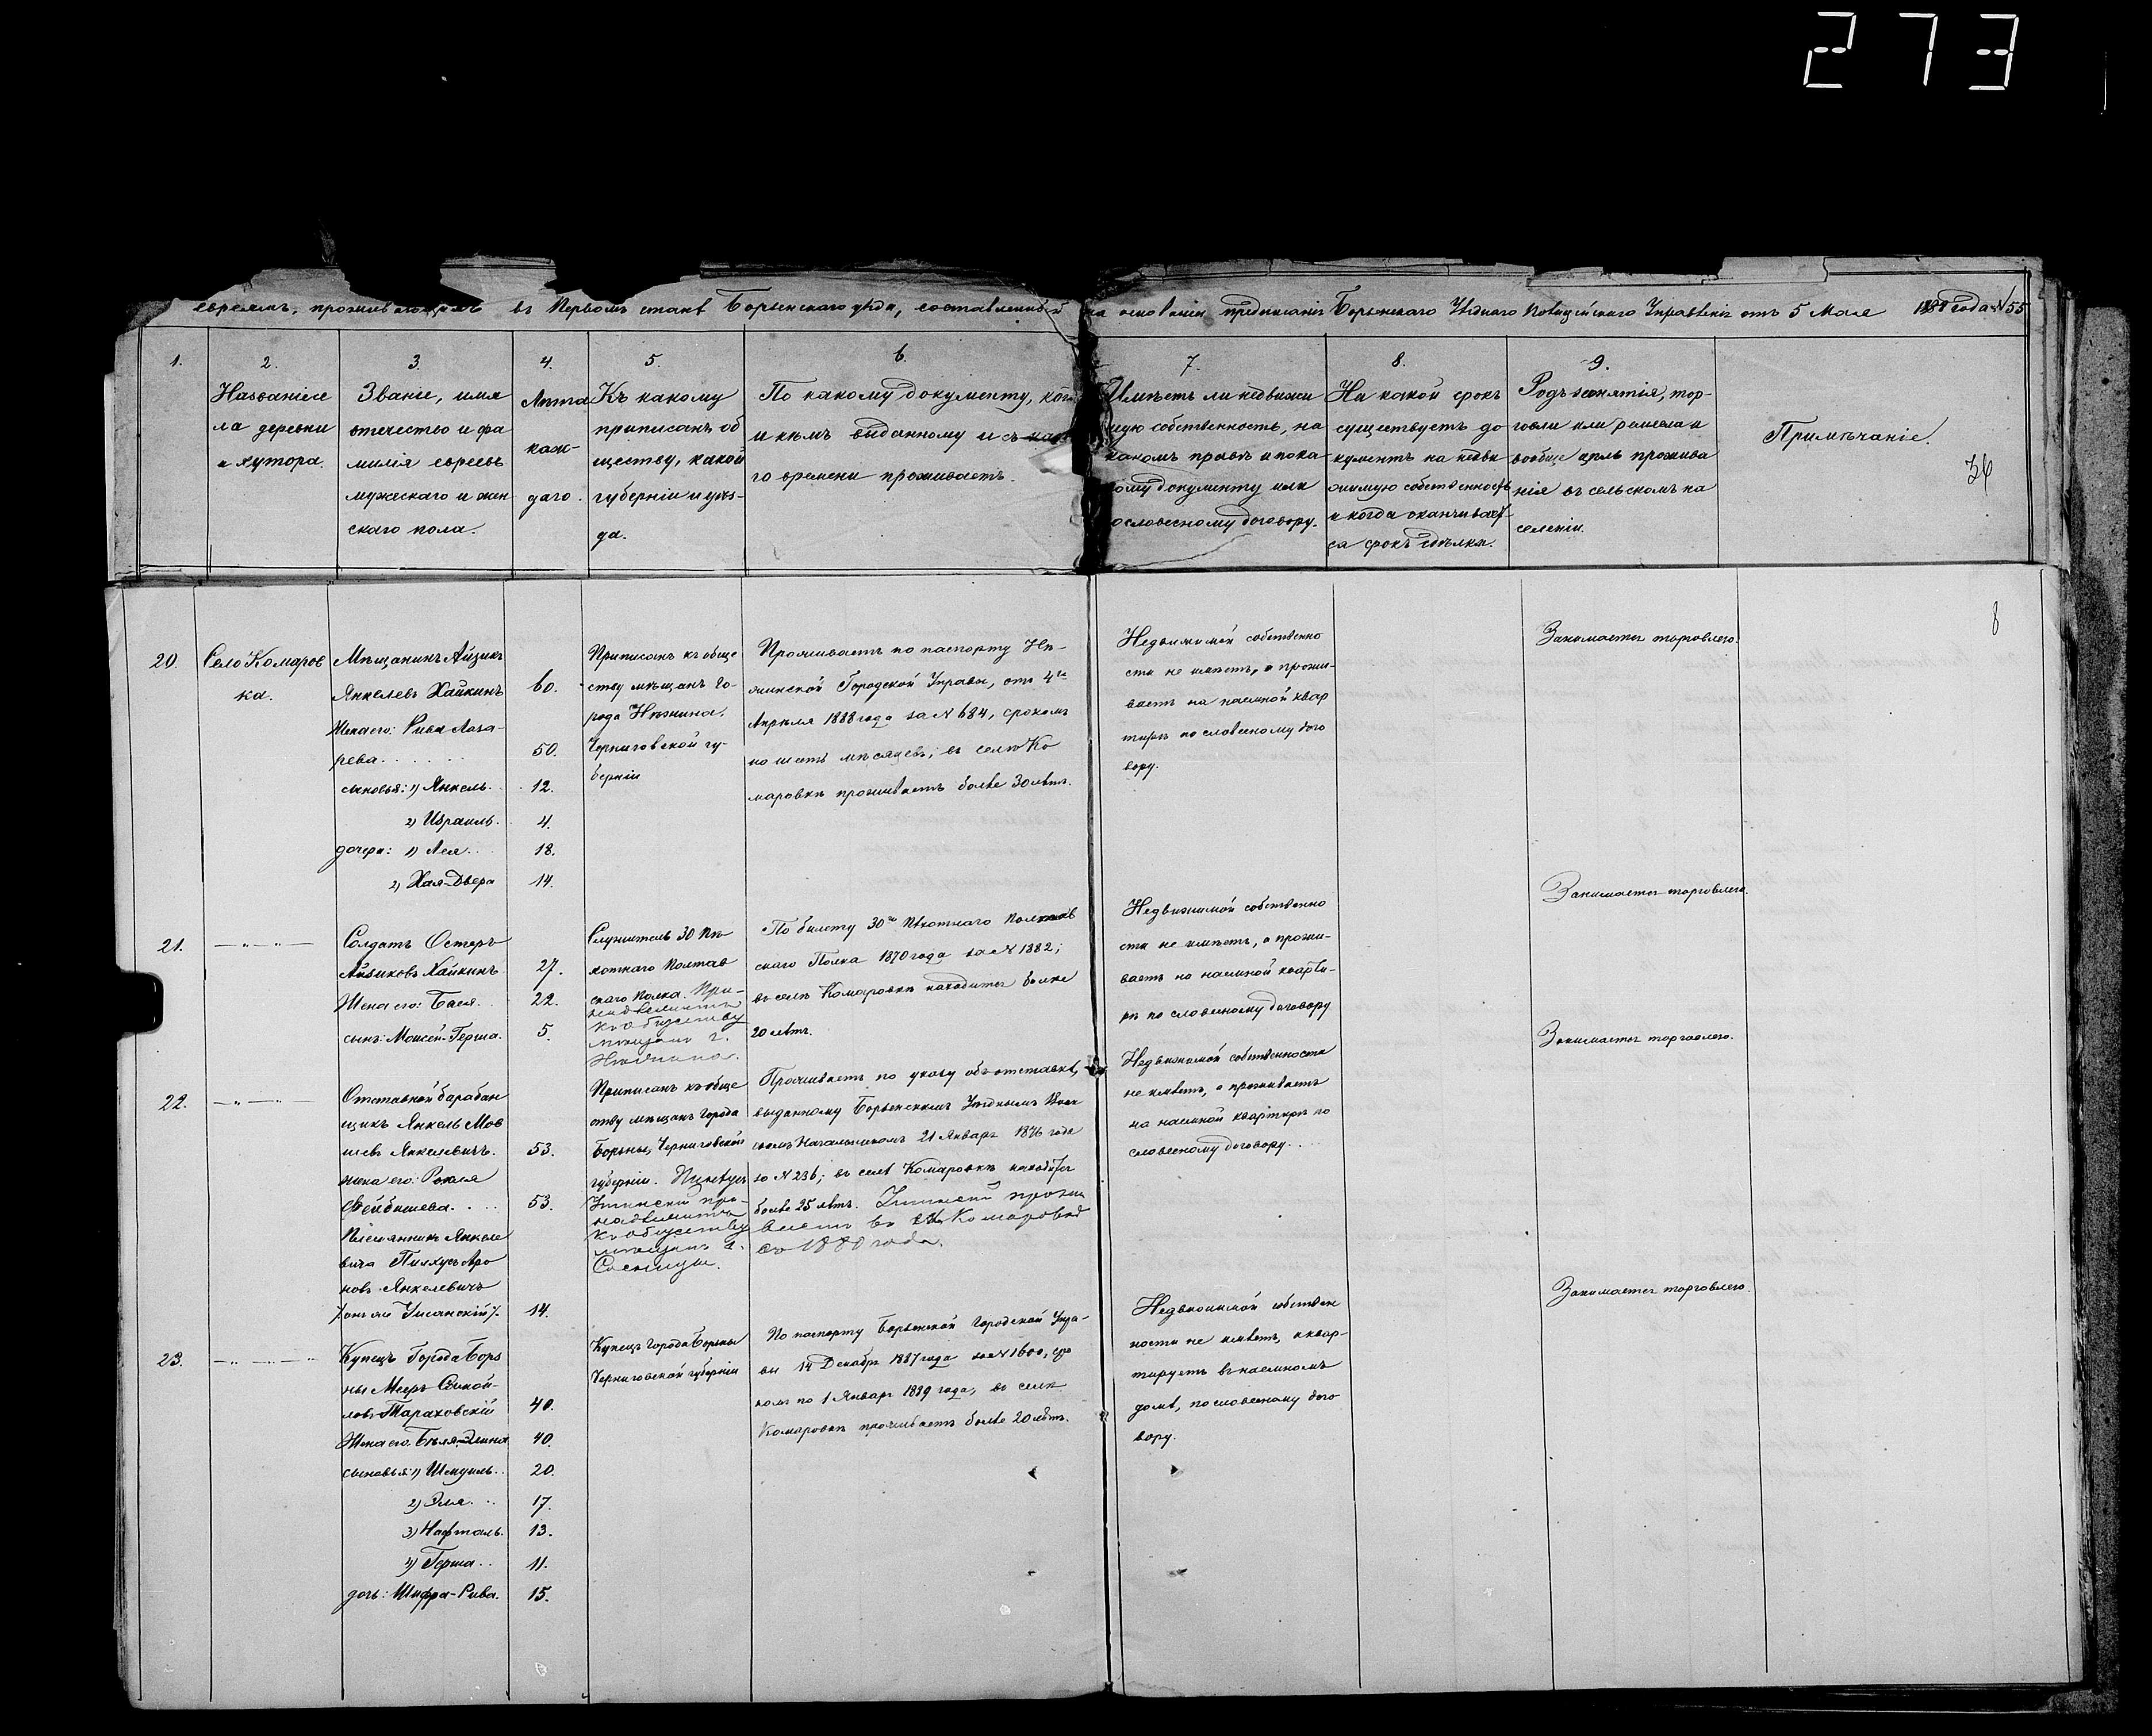 273
евреямъ, проживающимъ въ Первомъ станѣ Борзенскаго уѣзда, составленный на основаніи предписанія Борзенскаго Уѣзднаго Полицейскаго Управленія отъ 5 Мая 1888 года № 55
1.
2.
Названіе се
ла деревни
и хутора.
3.
Званіе, имя
отечество и фа
милія евреевъ
мужескаго и жен
скаго пола.
4.
Лѣта
каж-
даго.
5.
Къ какому
приписанъ об
ществу, какой
губерніи и уѣз-
да.
6.
По какому документу, ког
и кѣмъ выданному и съ како
го времени проживаетъ.
7.
Имѣетъ ли недвижи
мую собственность, на
какомъ правѣ и по ка-
кому документу или
пословесному договору.
8.
На какой срокъ
существуетъ до
кументъ на недви
жимую собственность
и когда оканчивает
ся срокъ сдѣлки.
9.
Родъ занятія, тор-
говли или ремесла и
вообще цѣль прожива
нія въ сельскомъ на
селеніи.
Примѣчаніе.
36
8
20.
Село Комаров
ка.
Мѣщанинъ Айзикъ
Янкелевъ Хайкинъ 60.
Жена его: Рива Лаза-
рева 50.
сыновья: 1) Янкель 12.
2) Израиль 4.
дочери: 1) Лея 18.
2) Хая-Двера 14.
Приписанъ къ обще
ству мѣщанъ го-
рода Нѣжина.
Черниговской гу-
берніи
Проживаетъ по паспорту Нѣ-
жинской Городской Управы, отъ 4го
Апрѣля 1888 года за № 684, срокомъ
на шесть мѣсяцевъ; въ селѣ Ко
маровкѣ проживаетъ болѣе 30 лѣтъ.
Недвижимой собственно
сти не имѣетъ, а прожи-
ваетъ на наемной квар
тирѣ по словесному дого
вору.
Занимается торговлею.
21.
Солдатъ Остеръ
Айзиковъ Хайкинъ 27.
Жена его: Бася 22.
сынъ: Мовсей-Герша. 5.
Служитель 30 пѣ
хотнаго Полтав
скаго Полка. При-
надлежитъ
къ обществу
мѣщанъ г.
Нѣжина.
По билету 30го Пѣхотнаго Полтав
скаго Полка 1870 года за № 1382;
въ селѣ Комаровкѣ находится болѣе
20 лѣтъ.
Недвижимой собственно
сти не имѣетъ, а прожи-
ваетъ на наемной кварти-
рѣ по словесному договору
Занимается торговлею.
22.
Отставной барабан
щикъ Янкель Мов
шевъ Янкелевичъ. 53.
жена его: Рохля
Фейбишева 53.
Племянникъ Янкеле
вича Пинхусъ Аро
новъ Янкелевичъ
/онъ же Уманскій/. 14.
Приписанъ къ обще
ству мѣщанъ города
Борзны, Черниговской
губерніи. Пинхусъ
Уманскій при-
надлежитъ
къ обществу
мѣщанъ г.
Сосницы.
Проживаетъ по указу объ отставкѣ,
выданному Борзенскимъ Уѣзднымъ Воин
скимъ Начальникомъ 21 Января 1876 года
за № 236; въ селѣ Комаровкѣ находится
болѣе 25 лѣтъ. Уманскій прожи
ваетъ въ с. Комаровкѣ
съ 1880 года.
Недвижимой собственности
не имѣетъ, а проживаетъ
на наемной квартирѣ по
словесному договору.
Занимается торговлею.
23.
Купецъ города Борз
ны Мееръ
ловъ Тараховскій 40.
Жена его: Бейля-Элина 40.
сыновья: 1) Шмуиль 20.
2) Эля 17.
3) Нафталь. 13.
4) Герша 11.
дочь: Шифра-Рива. 15.
Купецъ города Борзны
Черниговской губерніи
По паспорту Борзенской Городской Упра-
вы 14 Декабря 1887 года за № 1600, сро
комъ по 1 Января 1889 года, въ селѣ
Комаровкѣ проживаетъ болѣе 20 лѣтъ.
Недвижимой собствен
ности не имѣетъ, а квар-
тируетъ въ наемномъ
домѣ, по словесному дого
вору.
Занимается торговлею.